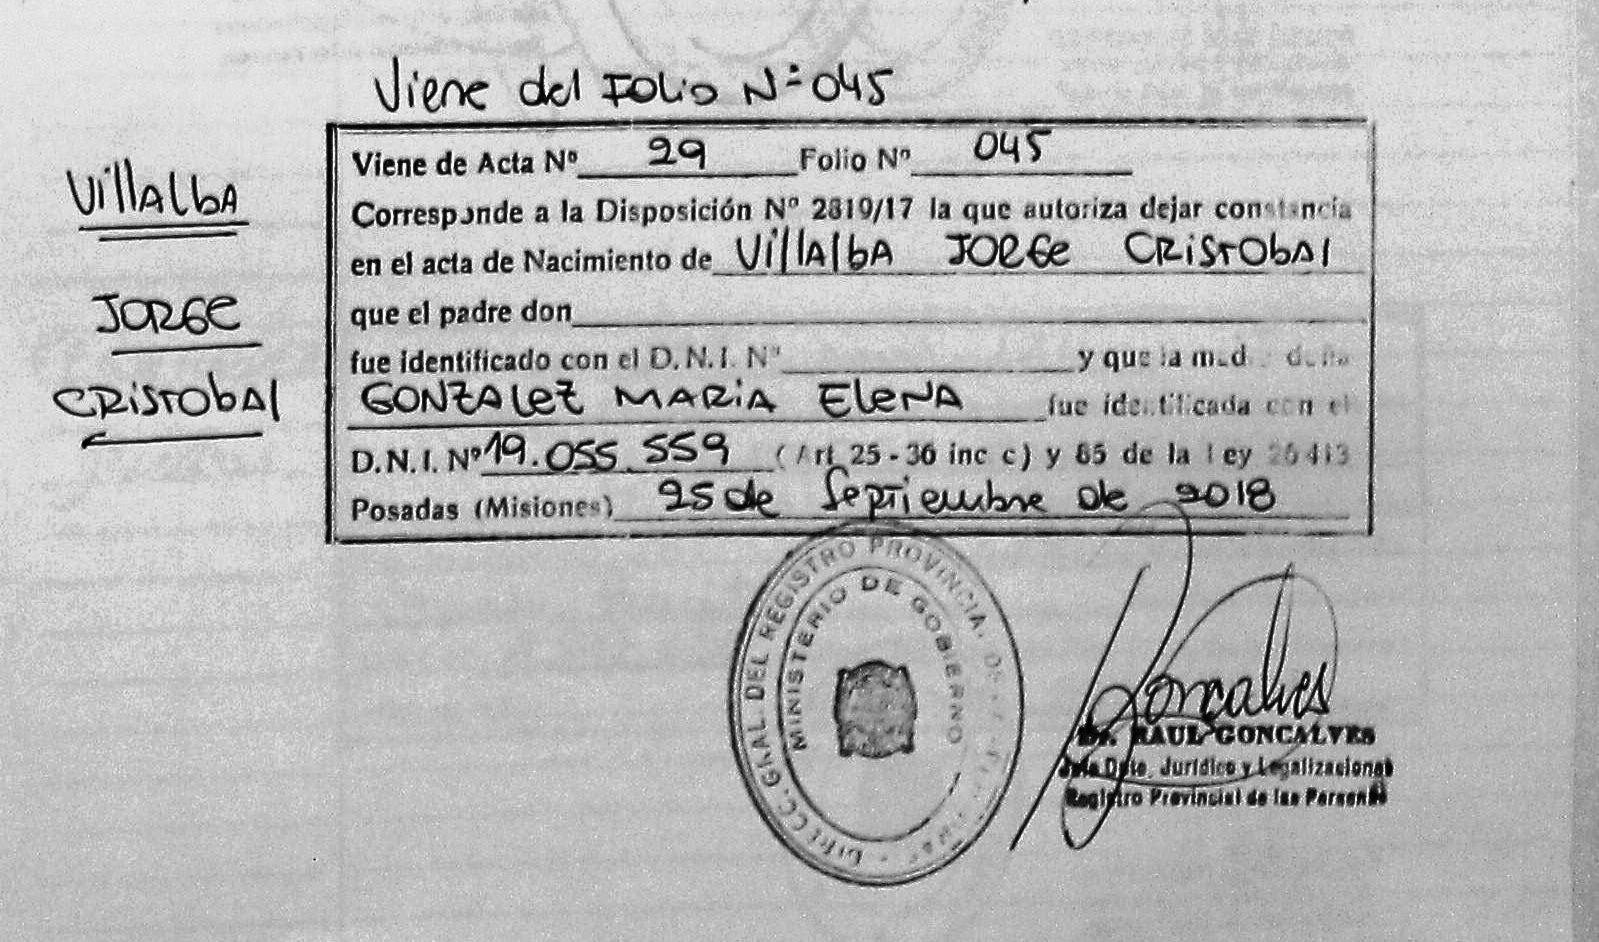 Viene del Folio Nº 045
Villalba
Jorge
Cristobal
Viene de Acta Nº 29 Folio Nº 045
Corresponde a la Disposición Nº 2819/17 la que autoriza dejar constancia
en el acta de Nacimiento de Villalba Jorge Cristobal
que el padre don
fue identificado con el D.N.I. Nº y que la
GONZALEZ MARIA ELENA fue identificada con el
D.N.I. Nº 19.055.559 (Art 25 - 36 inc c) y 85 de la Ley 26413
Posadas (Misiones) 25 de Septiembre de 2018
DIRECC. GRAL. DEL REGISTRO PROVINCIAL DE
MINISTERIO DE GOBIERNO
Goncalves
Dr. RAUL GONCALVES
Jefe Dpto. Jurídico y Legalizaciones
Registro Provincial de las Personas